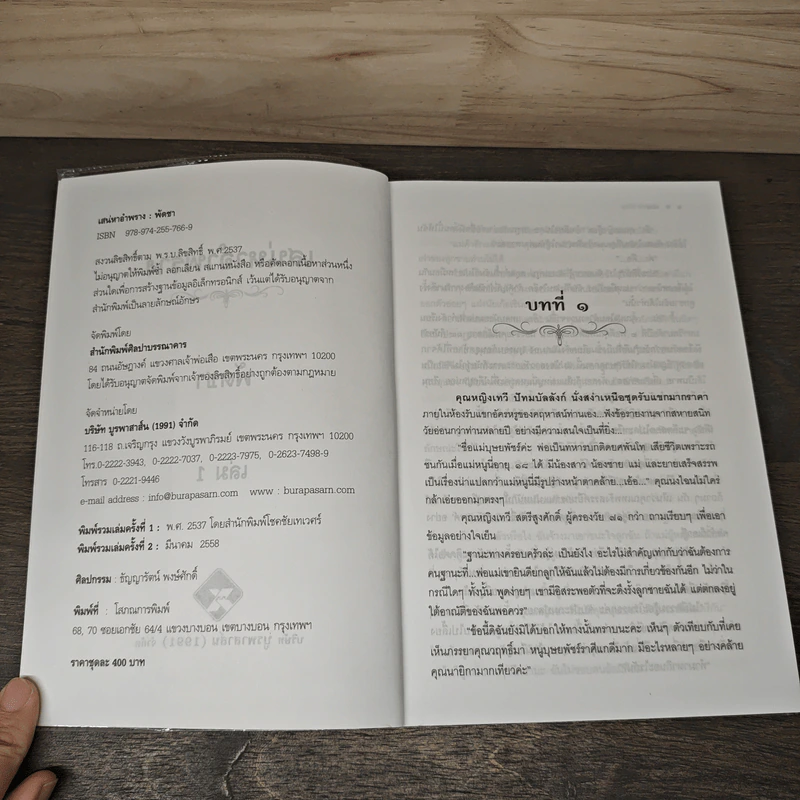 เสน่หาอำพราง : พัดชา
ISBN 978-974-255-766-9
สงวนลิขสิทธิ์ตาม พ.ร.บ.ลิขสิทธิ์ พ.ศ.2537
ไม่อนุญาตให้พิมพ์ซ้ำ ลอกเลียน สแกนหนังสือ หรือคัดลอกเนื้อหาส่วนหนึ่ง
ส่วนใดเพื่อการสร้างฐานข้อมูลอิเล็กทรอนิกส์ เว้นแต่ได้รับอนุญาตจาก
สำนักพิมพ์เป็นลายลักษณ์อักษร
จัดพิมพ์โดย
สำนักพิมพ์ศิลปาบรรณาคาร
84 ถนนอัษฎางค์ แขวงศาลเจ้าพ่อเสือ เขตพระนคร กรุงเทพฯ 10200
โดยได้รับอนุญาตจัดพิมพ์จากเจ้าของลิขสิทธิ์อย่างถูกต้องตามกฎหมาย
จัดจำหน่ายโดย
บริษัท บูรพาสาส์น (1991) จำกัด
116-118 ถ.เจริญกรุง แขวงวังบูรพาภิรมย์ เขตพระนคร กรุงเทพฯ 10200
โทร.0-2222-3943, 0-2222-7037, 0-2223-7975, 0-2623-7498-9
โทรสาร 0-2221-9446
e-mail address : info@burapasarn.com www : burapasarn.com
พิมพ์รวมเล่มครั้งที่ 1 : พ.ศ. 2537 โดยสำนักพิมพ์โชคชัยเทเวศร์
พิมพ์รวมเล่มครั้งที่ 2 : มีนาคม 2558
ศิลปกรรม : ธัญญารัตน์ พงษ์ศักดิ์
พิมพ์ที่ : โสภณการพิมพ์
68, 70 ซอยเอกชัย 64/4 แขวงบางบอน เขตบางบอน กรุงเทพฯ
ราคาชุดละ 400 บาท
บทที่ ๑
คุณหญิงเทวี ปัทมบัลลังก์ นั่งสง่าเหนือชุดรับแขกมากราคา
ภายในห้องรับแขกอัครหรูของคฤหาสน์ท่านเอง...ฟังข้อรายงานจากสหายสนิท
วัยอ่อนกว่าท่านหลายปี อย่างมีความสนใจเป็นที่ยิ่ง...
"ชื่อแม่บุษยพัชร์ค่ะ พ่อเป็นทหารปกติคยศพันโท เสียชีวิตเพราะรถ
ชนกันเมื่อแม่หนูนี่อายุ ๑๘ ได้ มีน้องสาว น้องชาย แม่ และยายเสร็จสรรพ
เป็นเรื่องน่าแปลกว่าแม่หนูนี่มีรูปร่างหน้าตาคล้าย...เอ้อ..." คุณน่งโฉมไม่ใคร่
กล้าเอ่ยออกมาตรงๆ
คุณหญิงเทวี สตรีสูงศักดิ์ ผู้ครองวัย ๗๑ กว่า ถามเรียบๆ เพื่อเอา
ข้อมูลอย่างใจเย็น
"ฐานะทางครอบครัวล่ะ เป็นยังไง อะไรไม่สำคัญเท่ากับว่าฉันต้องการ
คนฐานะที่...พ่อแม่เขายินดียกลูกให้ฉันแล้วไม่ต้องมีการเกี่ยวข้องกันอีก ไม่ว่าใน
กรณีใดๆ ทั้งนั้น พูดง่ายๆ เขามีอิสระพอตัวที่จะดึงรั้งลูกชายฉันได้ แต่ตกลงอยู่
ใต้อาณัติของฉันพอควร"
"ข้อนี้ดิฉันยังมิได้บอกให้ทางนั้นทราบนะคะ เห็นๆ ตัวเทียบกับที่เคย
เห็นภรรยาคุณวฤทธิ์มา หนูบุษยพัชร์ราศีแกดีมาก มีอะไรหลายๆ อย่างคล้าย
คุณนายิกามากเทียวค่ะ"